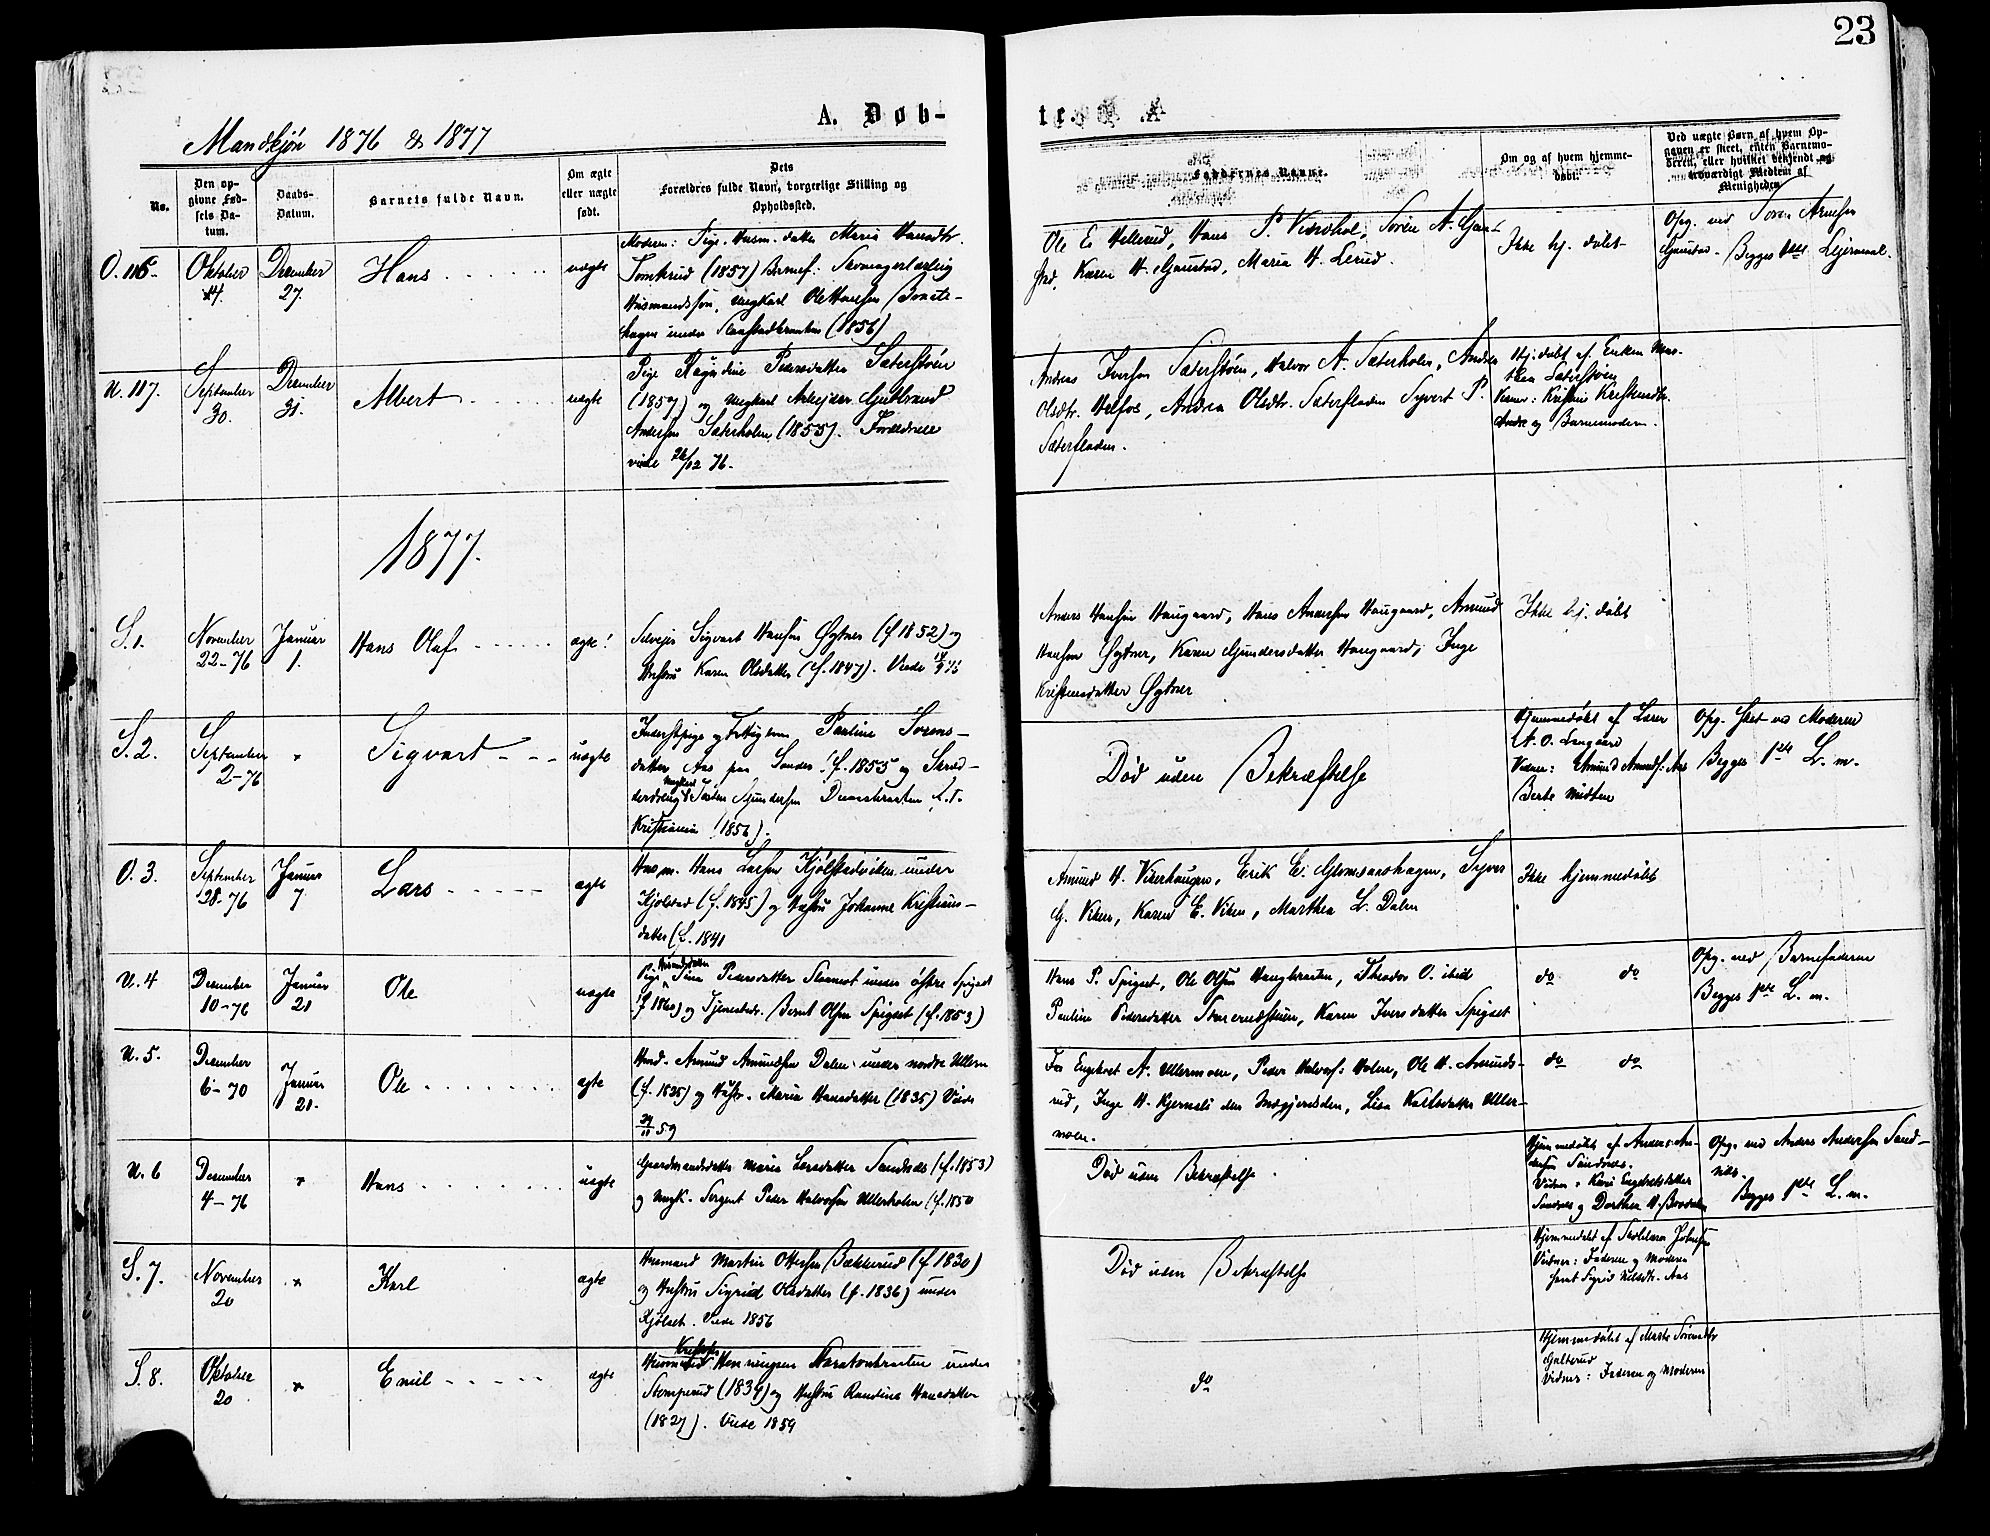 23
A. Døb-
ter.
Mandkjøn 1876 & 1877
No.
Den op-
givne Fød-
sels Da-
tum.
Daabs-
Datum.
Barnets fulde Navn.
Om ægte
eller uægte
født.
Dets
Forældres fulde Navn, borgerlige Stilling og
Opholdssted.
Faddernes Navne.
Om og af hvem hjemme-
døbt.
Ved uægte Børn af hvem Op-
gaven er skeet, enten Barnemo-
deren, eller hvilket bekjendt og
troværdigt Medlem af
Menigheden.
O. 116.
Oktober
14.
December
27.
Hans
uægte
Moderen: Pige. Husm. datter Maria Hansdtr.
(1857) Barnef:
Husmandssøn, Ungkarl Ole Hansen
under (1856)
Ole E. Hellerud, Hans P. Søren A.
Karen H. Gaustad, Maria H. Lerud.
Ikke hj. døbt
Opg. ved Arnesen
Gaustad. Begges 1ste Leiermaal.
U. 117.
September
30.
December
31.
Albert
uægte
Pige Pedersdatter Sæterstøen
(1857) og Ungkarl Arbejder Gulbrand
Andersen Sæterholen (1855). Forældrene
viede 26/12 76.
Andreas Iversen Sæterstøen, Halvor A. Sæterholen, Andrea
Olsdtr. Helfos, Andrea Olsdtr. Sæterfladen Syvert P.
Sæterfladen.
Hj. døbt af Enken
Sæterstøen
Vidner: Kristine Kristensdtr.
og Barnemoderen.
1877.
S. 1.
November
22-76
Januar
1.
Hans Olaf
ægte!
Selvejer Sigvart Hansen Øgtner (f 1852) og
Hustru Karen Olsdatter (f. 1847). Viede 75
Anders Hansen Haugaard, Hans Andersen Haugaard, Amund
Hansen Øgtner, Karen Gundersdatter Haugaard, Inge
Kristensdatter Øgtner
Ikke hj. døbt
S. 2.
September
2-76
"
Sigvart
uægte
Inderstpige og Pauline Sørens-
datter Aas paa Sander (f. 1855 og Skræd-
Kristiania (1856).
Død uden Bekræftelse
Hjemmedøbt af Lærer
A. O. Langaard
Vidner: Amund Amunds: Aas
Berte Midtbøe
Opg. skeet ved Moderen
Begges 1ste L. m.
O. 3.
September
28-76
Januar
7.
Lars
ægte
Husm. Hans Larsen Kjølstadviken under
Kjølstad (f. 1845) og Hustru Johanne Kristians-
datter (f. 1841
Amund H. Vikerhaugen, Erik E. Glomsaashagen, Syver
G. Viken, Karen E. Viken, Marthea L. Dalen
Ikke hjemmedøbt
U. 4
December
10-76
Januar
21
Ole
uægte
Pige Pedersdatter under østre Spigset
(f 1860) og Tjenestedr. Bernt Olsen Spigset (f. 1853)
Hans P. Spigset, Ole Olsen Haugbraaten, Theodor O. ibid
Pauline Pedersdatter Karen Iversdatter Spigset
do do
Opg. ved Barnefaderen
Begges 1ste L. m.
U. 5.
December
6-70
Januar
21.
Ole
ægte
Husd. Amund Amundsen Dalen under nordre Ullern
(f. 1835) og Hustr. Maria Hansdatter (1835) Viede
59
For Engebret A. Ullernmoen, Peder Halvors: Holen, Ole H. Amunds-
rud, Inge H. Lisa Karlsdatter Uller-
moen.
do do
U. 6
December
4-76
"
Hans
uægte
Gaardmandsdatter Maria Larsdatter Sandnæs (f. 1853)
og Ungk. Sergent Peder Halvorsen Ullerholen (f. 1850
Død uden Bekræftelse
Hjemmedøbt af Anders An-
dersen Sandnæs.
Vidner: Kari Engebretsdatter
Sandnæs og Dorthea H.
Opg. ved Anders Andersen Sand-
næs.
Begges 1ste L. m.
S. 7.
November
20
"
Karl
ægte
Husmand Martin Ottersen Bækkerud (f 1830)
og Hustru Sigrid Olsdatter (f. 1836) under
Kjølset. Viede 1856
Død uden Bekræftelse
Hjemmedøbt af Johnsen
Vidner: Faderen og Moderen
samt Sigrid Nilsdtr. Aas
S. 8.
Oktober
20
"
Emil
ægte
Husmand Kristofer Henningsen under
(1834) og Hustru Randine Hansdatter
(1827). Viede 1859
do
Hjemmedøbt af Marte Sørensdtr
Galterud
Vidner: Faderen og Moderen